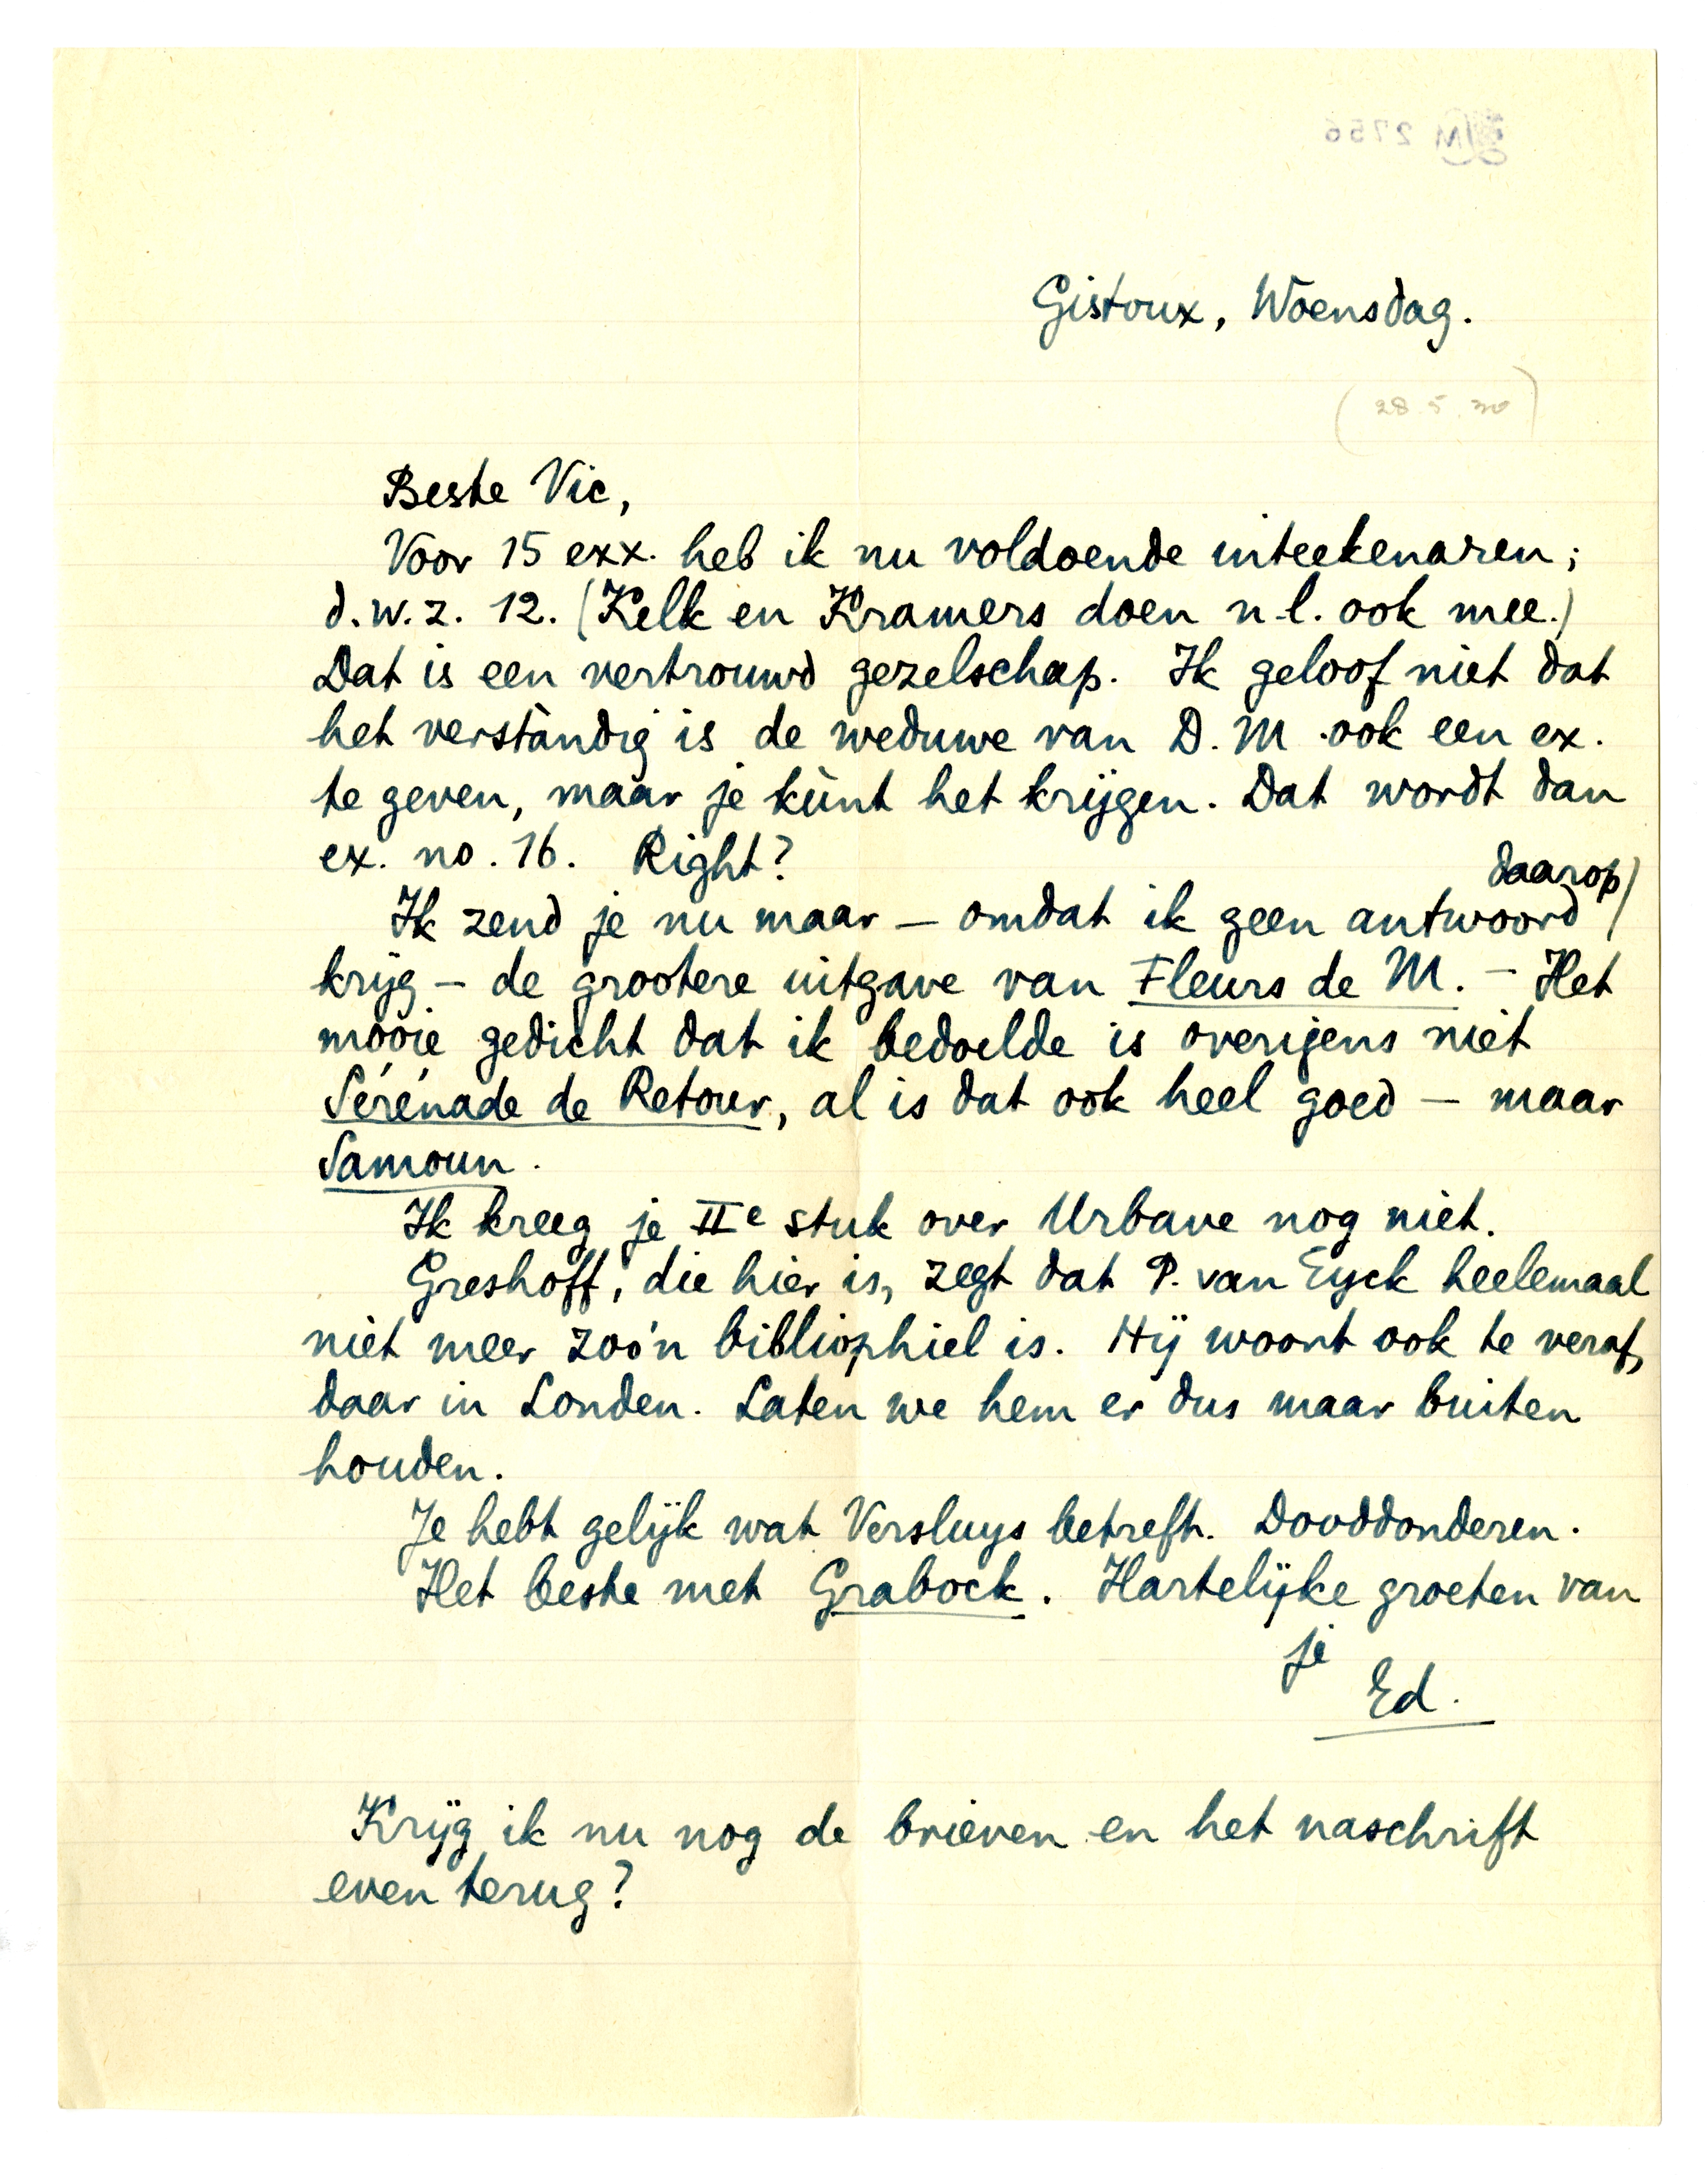 M 2756
Gistoux, Woensdag.
(28.5.30)
Beste Vic,
Voor 15 exx. heb ik nu voldoende inteekenaren;
d.w.z. 12. (Kelk en Kramers doen n.l. ook mee.)
Dat is een vertrouwd gezelschap. Ik geloof niet dat
het verstàndig is de weduwe van D. M. ook een ex.
te geven, maar je kùnt het krijgen. Dat wordt dan
ex. no. 16. Right?
Ik zend je nu maar – omdat ik geen antwoord daarop
krijg – de grootere uitgave van Fleurs de M. – Het
mooie gedicht dat ik bedoelde is overigens niet
Sérénade de Retour, al is dat ook heel goed – maar
Samoun.
Ik kreeg je IIe stuk over Urbave nog niet.
Greshoff, die hier is, zegt dat P. van Eyck heelemaal
niet meer zoo'n bibliophiel is. Hij woont ook te veraf,
daar in Londen. Laten we hem er dus maar buiten
houden.
Je hebt gelijk wat Versluys betreft. Dooddonderen.
Het beste met Grabock. Hartelijke groeten van
je
Ed.
Krijg ik nu nog de brieven en het naschrift
even terug?